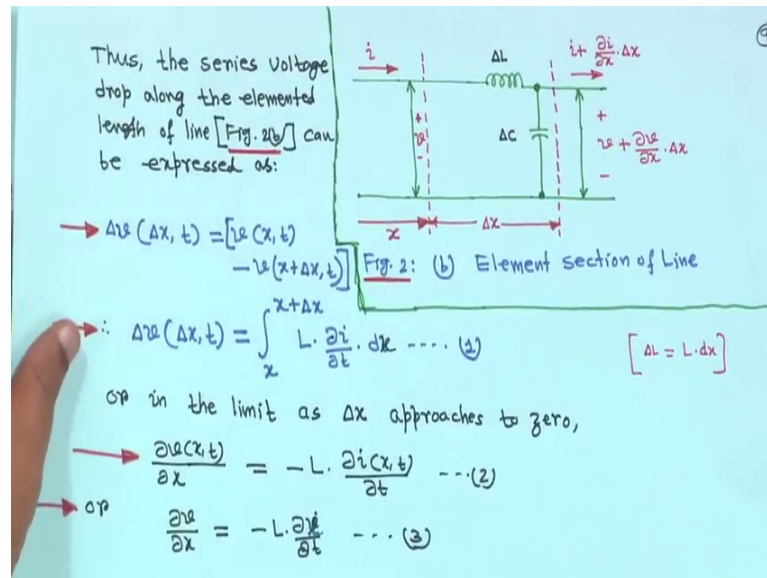 Thus, the series voltage
drop along the elemented
length of line [Fig. 2(b)] can
be expressed as:
→ Δv (Δx, t) = [v(x, t)
- v(x+Δx, t)]
i
ΔL
i + ∂i/∂x . Δx
+ v -
ΔC
+
v + ∂v/∂x . Δx
-
x
Δx
Fig. 2: (b) Element section of Line
→ ∴ Δv(Δx, t) = ∫ₓ^(x+Δx) L. ∂i/∂t . dx .... (1)
[ΔL = L.dx]
or in the limit as Δx approaches to zero,
→ ∂v(x,t)/∂x = -L. ∂i(x,t)/∂t ---(2)
→ or ∂v/∂x = -L. ∂i/∂t --- (3)